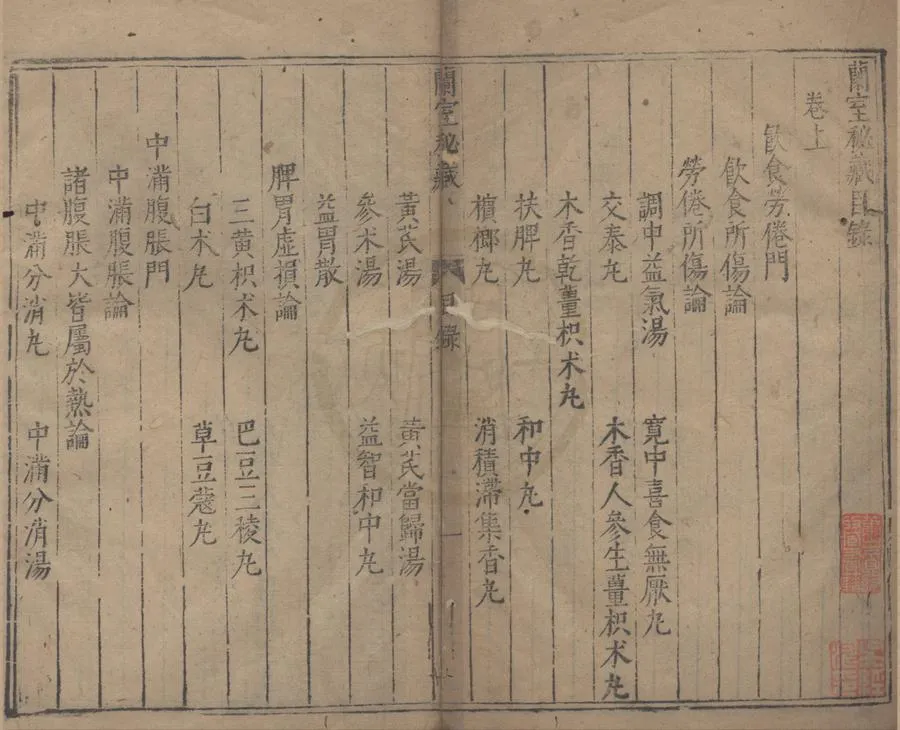 蘭室秘藏目錄
卷上
飲食勞倦門
飲食所傷論
勞倦所傷論
調中益氣湯 寬中喜食無厭丸
交泰丸 木香人參生薑枳术丸
木香乾薑枳术丸
扶脾丸 和中丸
檳榔丸 消積滯集香丸
蘭室秘藏 目錄 一
黃芪湯 黃芪當歸湯
參术湯 益智和中丸
益胃散
脾胃虛損論
三黃枳术丸 巴豆三稜丸
白术丸 草豆蔻丸
中滿腹脹門
中滿腹脹論
諸腹脹大皆屬於熱論
中滿分消丸 中滿分消湯